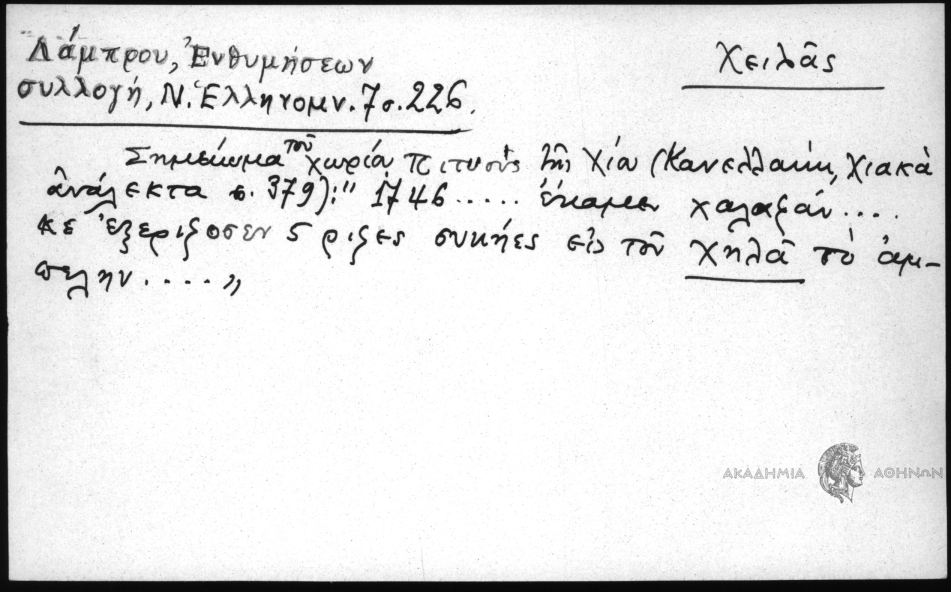 Λάμπρου, Ἐνθυμήσεων
συλλογή, Ν. Ἑλληνομν. 7 σ. 226.
Χειλᾶς
Σημείωμα τοῦ χωρίου Πιτυοῦς τῆς Χίου (Κανελλάκη, Χιακὰ
ἀνάλεκτα σ. 379): " 1746 ..... ἔκαμεν χαλαζάν ....
κὲ ἐξερίζοσεν 5 ριζες συκήες εἰς τοῦ Χηλᾶ τὸ ἀμ-
πελην .... "
ΑΚΑΔΗΜΙΑ ΑΘΗΝΩΝ